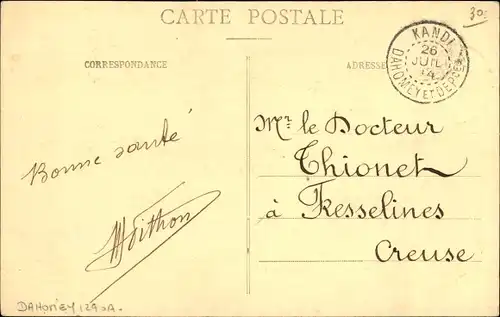 CARTE POSTALE
30
CORRESPONDANCE
ADRESSE
KANDI
26
JUIL
14
DAHOMEY ET DEPCES
Mr le Docteur
Thionet
à Fresselines
Creuse
Bonne santé
DAHOMEY